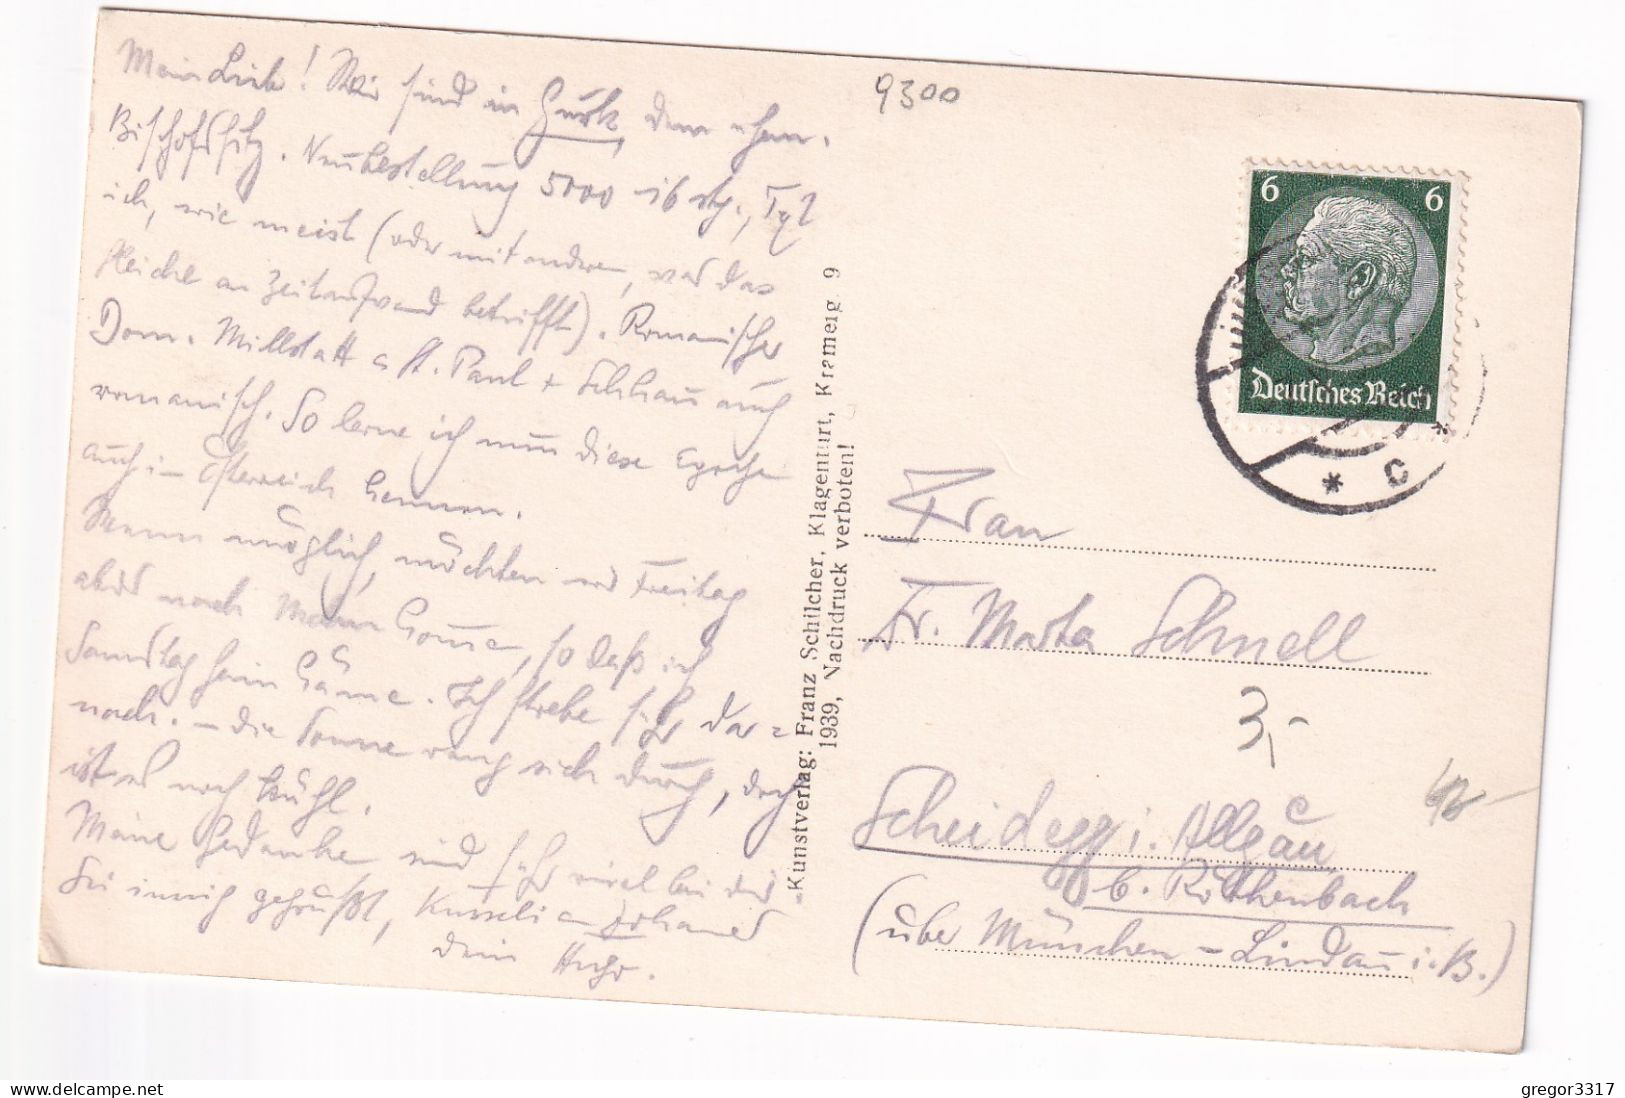 Mein Lieb! Wir sind in Gurk, dem ehem.
Bischofssitz. Neubestellung 5000
ich, wie meist (oder mit anderen, was das
Gleiche an Zeitaufwand betrifft). Romanischer
Dom. Millstatt u. St. Paul + auch
romanisch. So lerne ich nun diese Epoche
auch in Österreich kennen.
Wenn möglich, möchten wir Freitag
abds nach so daß ich
Samstag heim käme. Ich strebe sehr da=
nach. – Die Sonne rang sich durch, doch
ist es noch kühl.
Meine Gedanken sind sehr viel bei dir
Sei innig gegrüßt, Kusseli an
Dein Hugo.
Kunstverlag: Franz Schilcher, Klagenfurt, Krameig 9
1939, Nachdruck verboten!
9300
6 6
Deutsches Reich
* c *
Frau
Fr. Marta Schnell
3,-
Scheidegg i. Allgäu
b. Röthenbach
(über München – Lindau i. B.)
gregor3317